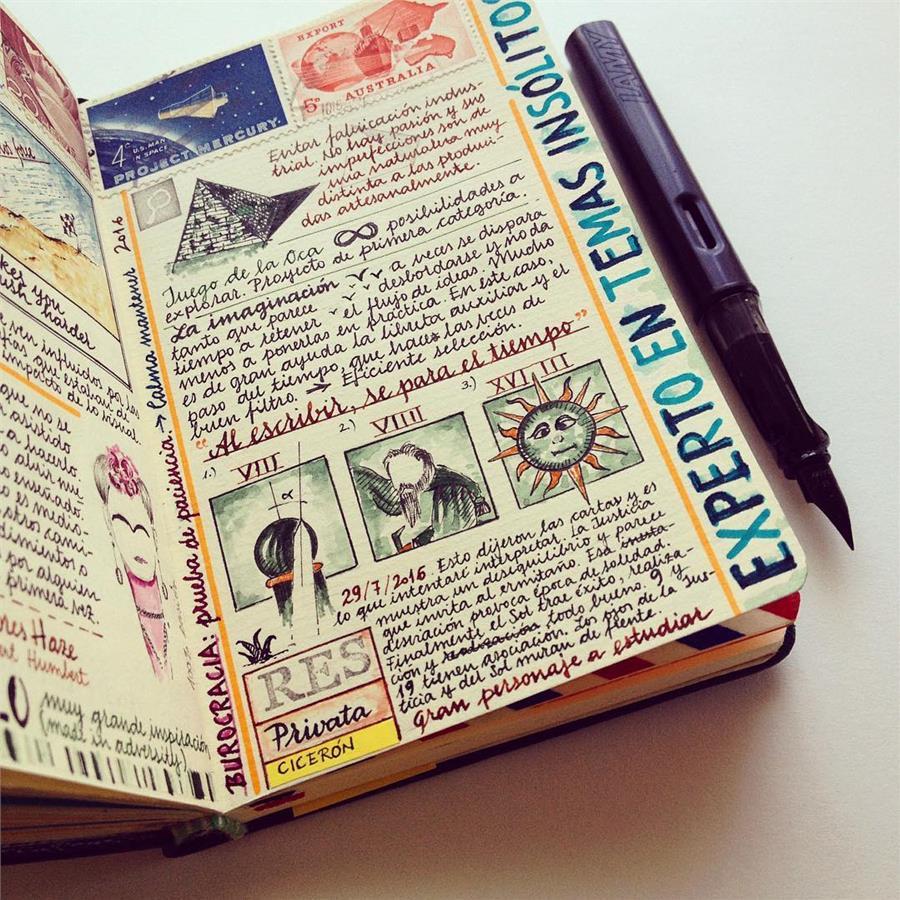 ker you
ush harder
ven influidos por las
impacto de lo visual.
que no se
asistido
a hacerlo
enseñado.
otro cami-
por alguien
primera vez.
Haze
Humbert
muy grande inspiración
(made in adversity)
BUROCRACIA: prueba de paciencia. → Calma mantener 2016
4¢ U.S. MAN IN SPACE
PROJECT MERCURY.
EXPORT
5D
AUSTRALIA
Evitar fabricación indus-
trial. No hay pasión y sus
imperfecciones son de
una naturaleza muy
distinta a las produci-
das artesanalmente.
Juego de la Oca ∞ posibilidades a
explorar. Proyecto de primera categoría.
La imaginación a veces se dispara
tanto que parece desbordarse y no da
tiempo a retener el flujo de ideas. Mucho
menos a ponerlas en práctica. En este caso,
es de gran ayuda la libreta auxiliar y el
paso del tiempo, que hacen las veces de
buen filtro. → Eficiente selección.
"Al escribir, se para el tiempo"
1.) VIII
2.) VIIII
3.) XVIIII
α
29/7/2016 Esto dijeron las cartas y es
lo que intentaré interpretar. La Justicia
muestra un desequilibrio y parece
que invita al ermitaño. Esa
desviación provoca época de soledad.
Finalmente el Sol trae éxito, realiza-
ción y todo bueno. 9 y
19 tienen asociación. Los ojos de la Jus-
ticia y del Sol miran de frente.
Gran personaje a estudiar
RES
Privata
CICERÓN
EXPERTO EN TEMAS INSÓLITOS
LAMY